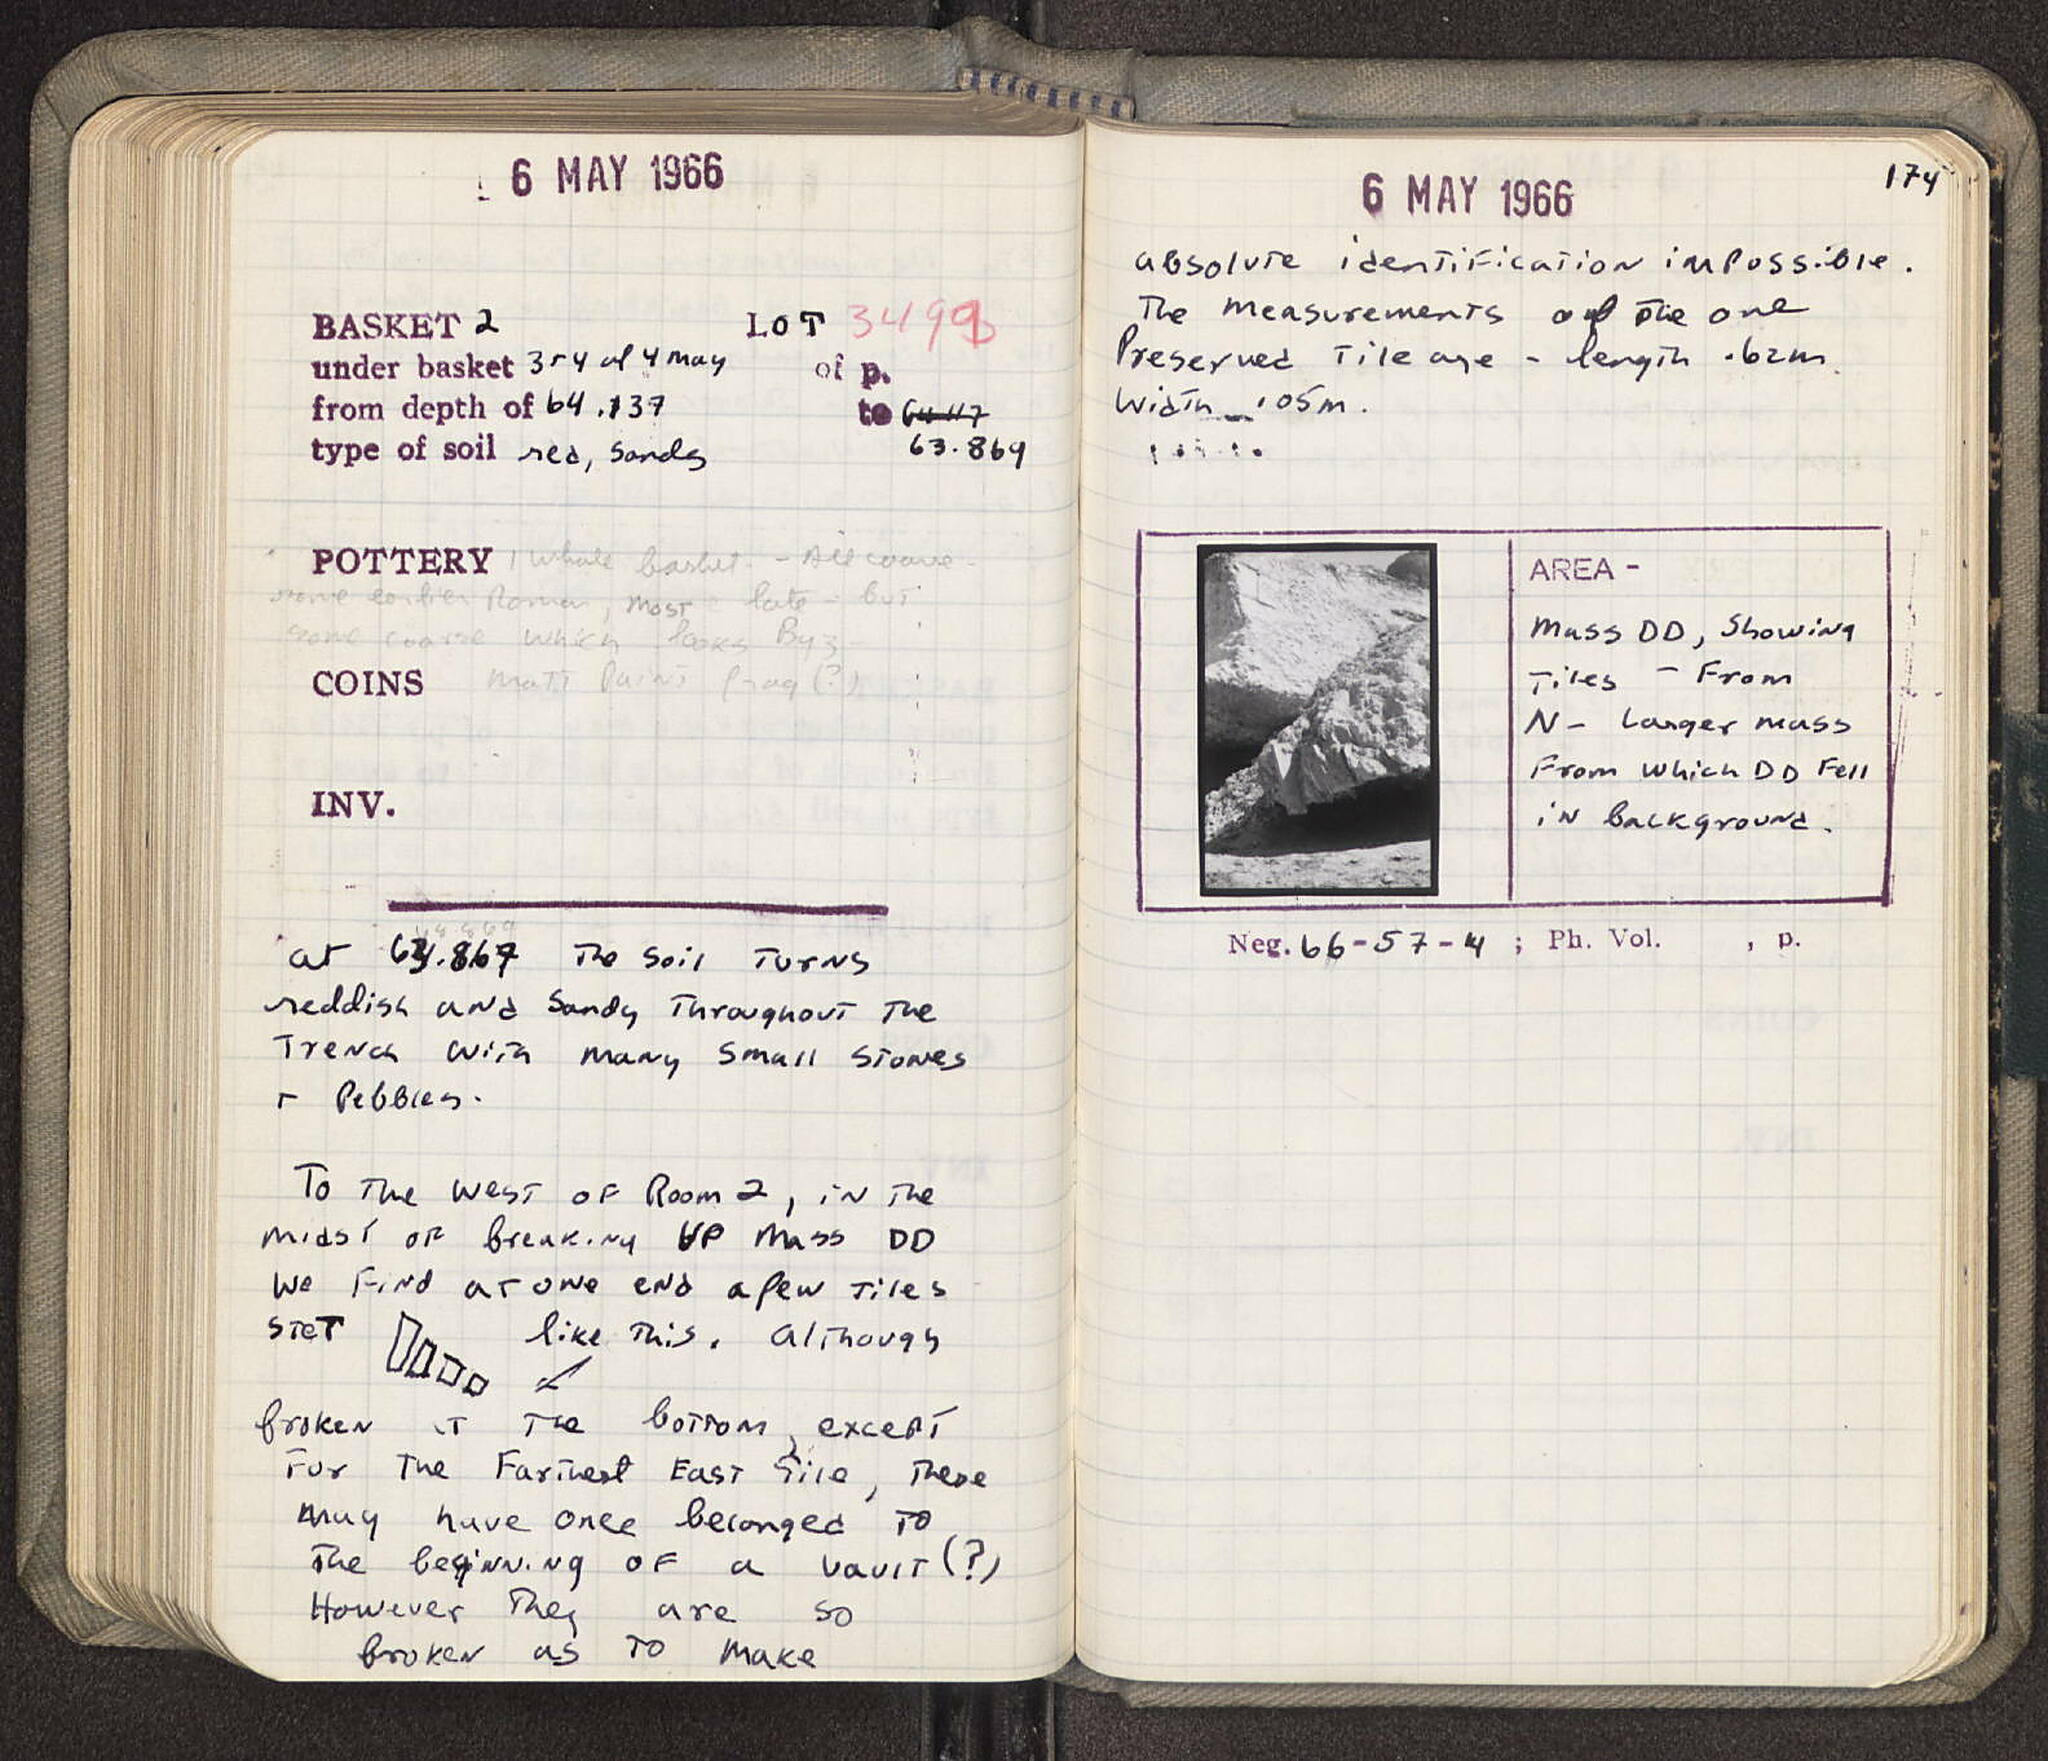 6 MAY 1966
BASKET 2 LOT 3499
under basket 3+4 of 4 may of p.
from depth of 64.137 to 64.117
type of soil red, Sandy 63.869
POTTERY 1 whole basket - All coarse -
some earlier Roman, most late - but
some coarse which looks Byz
COINS matt Paint frag (?)
INV.
63.869
at 63.867 The soil Turns
reddish and Sandy Throughout The
Trench with many small stones
+ Pebbles.
To The West of Room 2, in The
midst of breaking up Mass DD
we find at one end a few tiles
set like This. Although
broken at The bottom, except
for The Farthest East Tile, These
may have once belonged To
The beginning of a vault (?)
However They are so
broken as To make
174
6 MAY 1966
absolute identification impossible.
The measurements of The one
Preserved Tile are - length .62m.
Width .05m.
AREA -
Mass DD, Showing
Tiles - From
N - Larger mass
From Which DD Fell
in background.
Neg. 66-57-4 ; Ph. Vol. , p.